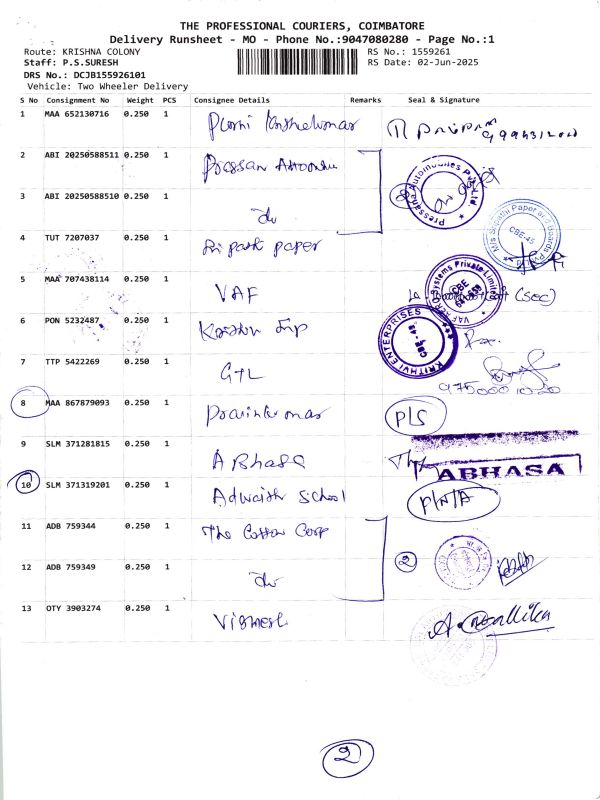 THE PROFESSIONAL COURIERS, COIMBATORE
Delivery Runsheet - MO - Phone No.:9047080280 - Page No.:1
Route: KRISHNA COLONY
RS No.: 1559261
Staff: P.S.SURESH
RS Date: 02-Jun-2025
DRS No.: DCJB155926101
Vehicle: Two Wheeler Delivery
S No Consignment No Weight PCS Consignee Details Remarks Seal & Signature
1 MAA 652130716 0.250 1
2 ABI 20250588511 0.250 1
Pressana Automobiles Pvt. Ltd.
3 ABI 20250588510 0.250 1 do
M/s Sripathi Paper and Boards Pvt
CBE-45
4 TUT 7207037 0.250 1 Sripathi paper
5 MAA 707438114 0.250 1 VAF
Systems Private Limited
CBE
(sec)
6 PON 5232487 0.250 1
KRITHVI ENTERPRISES
CBE-45
7 TTP 5422269 0.250 1 GTL
8 MAA 867879093 0.250 1 P/S
9 SLM 371281815 0.250 1 A Bhasa
ABHASA
10 SLM 371319201 0.250 1 Adwaith School P/N/A
11 ADB 759344 0.250 1 The Cotton Corp
2
12 ADB 759349 0.250 1 do
13 OTY 3903274 0.250 1 Vignesh A. Mallika
2